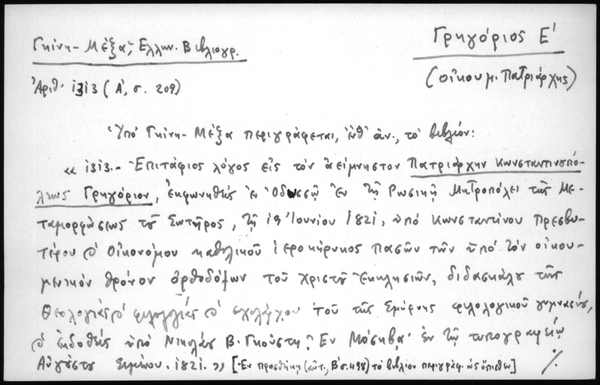 Γκίνη - Μέξα, Ελλην. Βιβλιογρ.
Γρηγόριος Ε'
Ἀριθ. 1313 (Α', σ. 209)
(Οἰκουμ. Πατριάρχης)
Ὑπό Γκίνη - Μέξα περιγράφεται, ἔνθ' ἀν., τό βιβλίον:
«1313.- Ἐπιτάφιος λόγος εἰς τόν ἀείμνηστον Πατριάρχην Κωνσταντινουπό-
λεως Γρηγόριον, ἐκφωνηθείς ἐν Ὀδησσῷ ἐν τῇ Ρωσικῇ Μητροπόλει τῆς Με-
ταμορφώσεως τοῦ Σωτῆρος, τῇ 19 Ἰουνίου 1821, ὑπό Κωνσταντίνου Πρεσβυ-
τέρου & Οἰκονόμου καθολικοῦ ἱεροκήρυκος πασῶν τῶν ὑπό τόν οἰκου-
μενικόν θρόνον ὀρθοδόξων τοῦ Χριστοῦ Ἐκκλησιῶν, διδασκάλου τῆς
Θεολογίας & φιλολογίας & σχολάρχου τοῦ τῆς Σμύρνης φιλολογικοῦ γυμνασίου,
& ἐκδοθείς ὑπό Νικολάου Β. Γκούστη. Ἐν Μόσχᾳ. ἐν τῷ τυπογραφείῳ
Αὐγούστου Σεμίνου. 1821.» [Ἐν προσθήκῃ (αὐτ., Β' σ. 498) τό βιβλίον περιγράφ. ὡς ὄπισθεν]